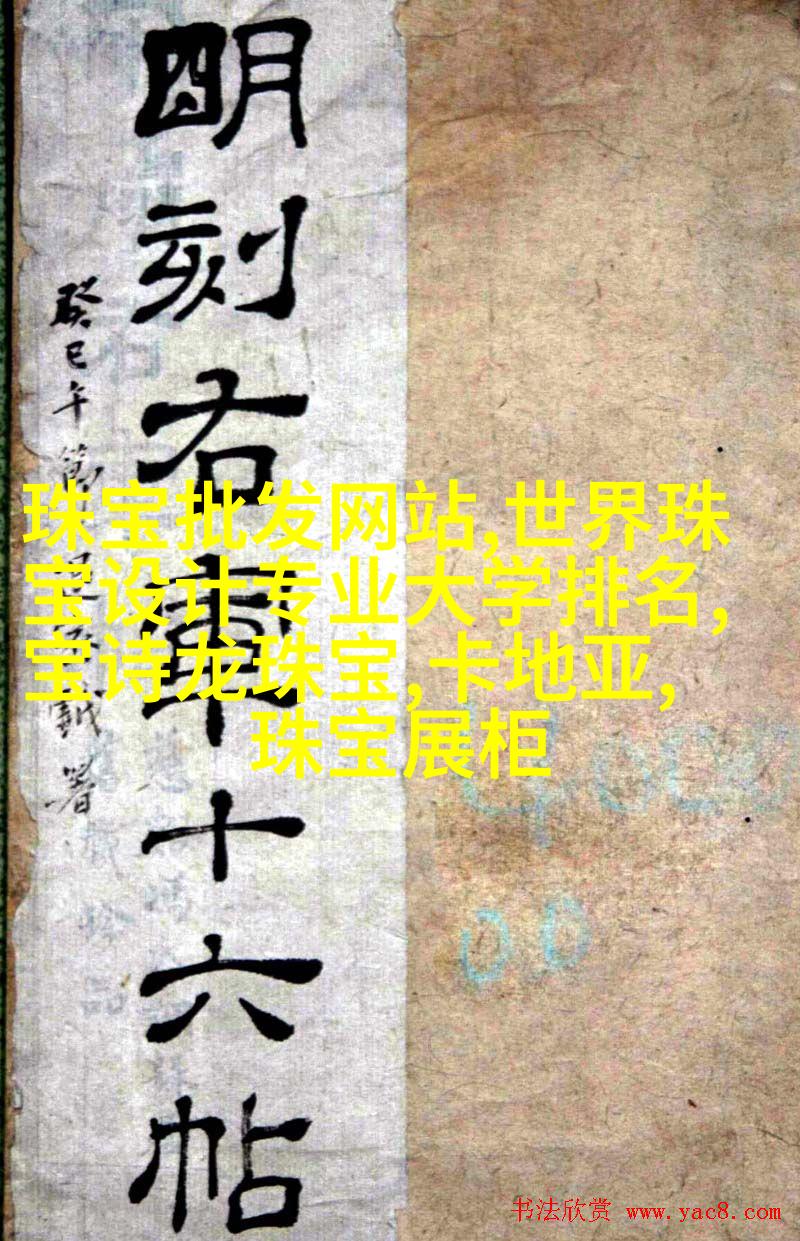 明刻右軍十六帖
癸巳年
珠宝批发网站,世界珠
宝设计专业大学排名,
宝诗龙珠宝,卡地亚,
珠宝展柜
书法欣赏 www.yac8.com